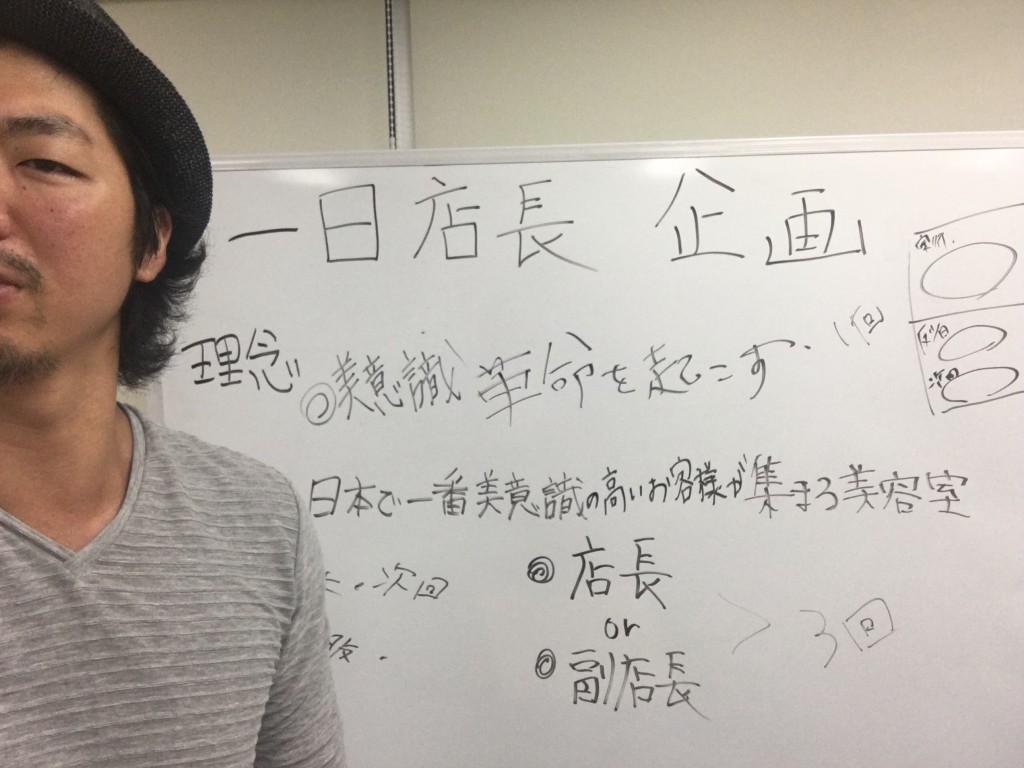 一日店長 企画
理念 ◎美意識 革命を起こす
1回
日本で一番美意識の高いお客様が集まる美容室
・次回
◎ 店長
or
◎ 副店長
3回
次回